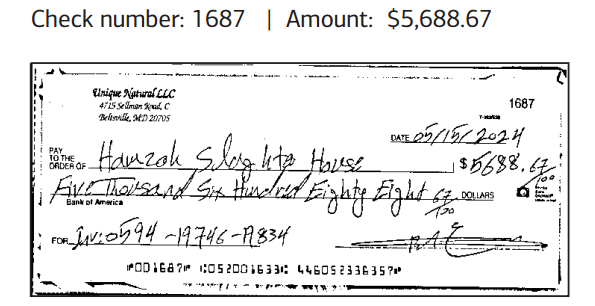 Check number: 1687 | Amount: $5,688.67
Unique Natural LLC
4715 Sellman Road, C
Beltsville, MD 20705
1687
DATE 05/15/2024
PAY TO THE ORDER OF Hamzah Slaghto House $5688.67/100
Five Thousand Six Hundred Eighty Eight 67/100 DOLLARS
Bank of America
FOR Inv:0594-19746-A834
⑈001687⑈ ⑆052001633⑆ 446052336357⑈